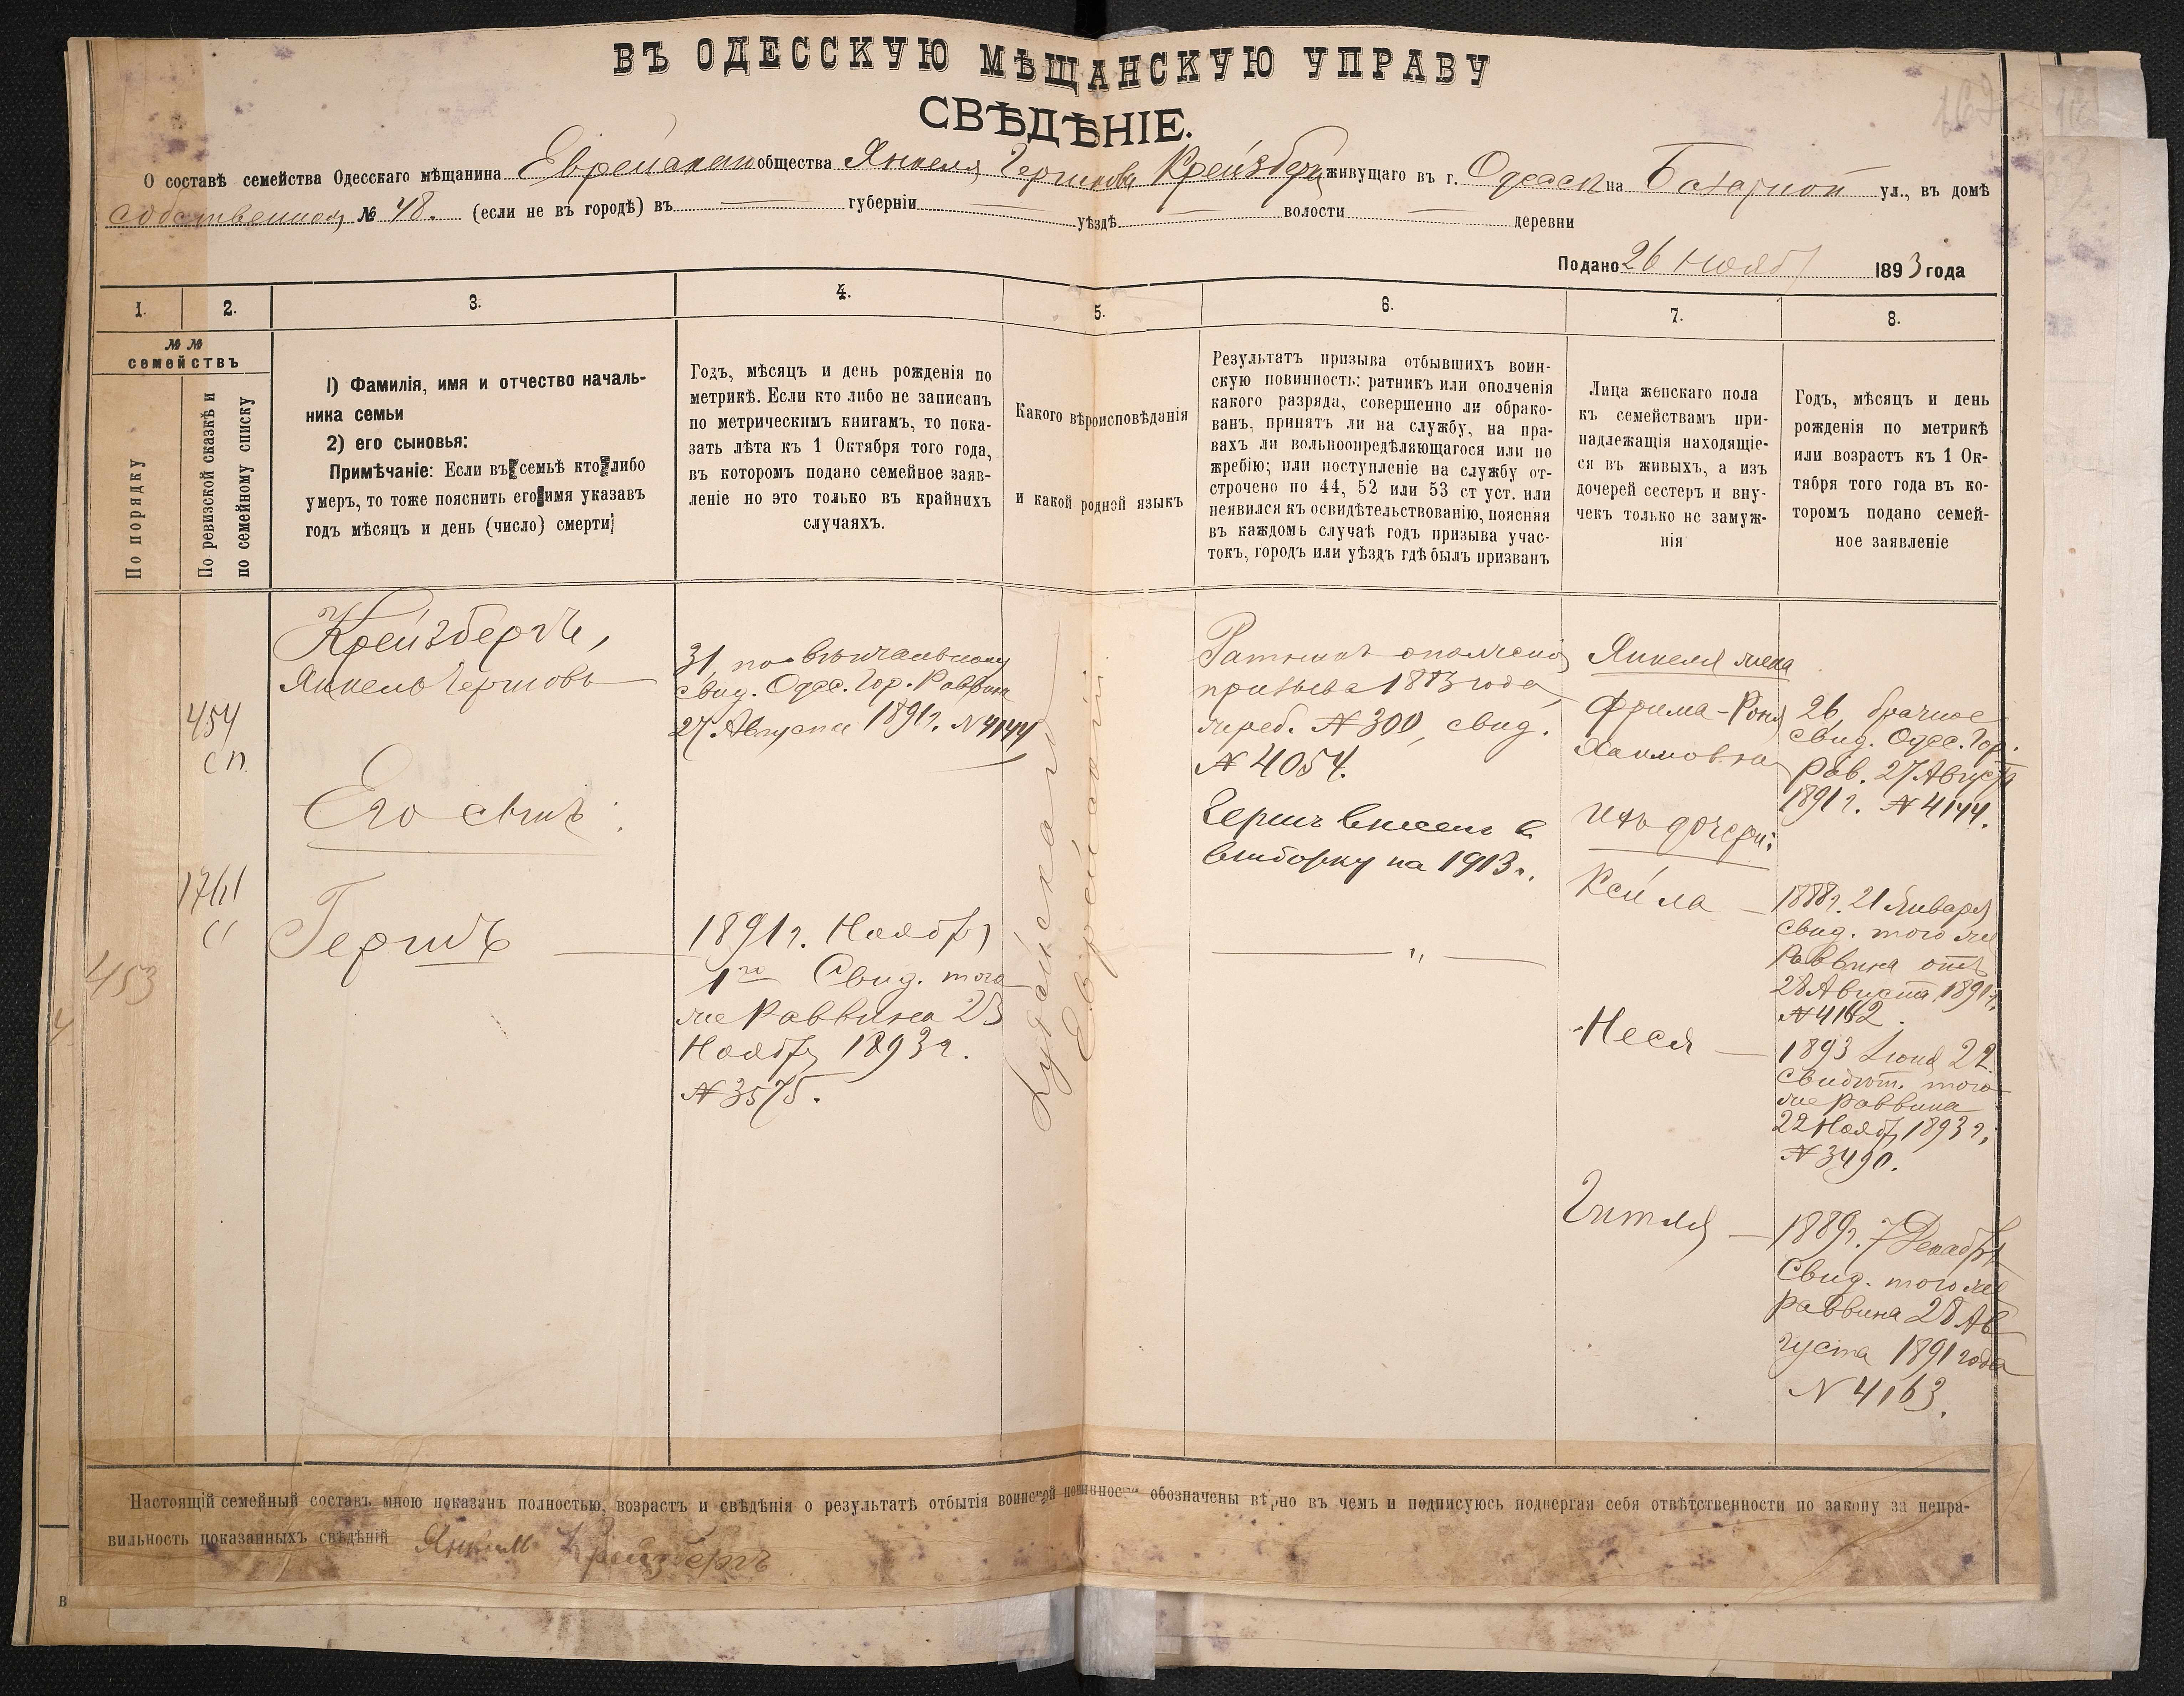 ВЪ ОДЕССКУЮ МѢЩАНСКУЮ УПРАВУ
СВѢДѢНІЕ.
О составѣ семейства Одесскаго мѣщанина Еврейскаго общества Янкеля Гершкова Крейзберга живущаго въ г. Одессѣ на Базарной ул., въ домѣ
собственном № 48. (если не въ городѣ) въ губерніи уѣздѣ волости деревни
Подано 26 Ноября 1893 года
1. 2. 3. 4. 5. 6. 7. 8.
№№
семействъ
По порядку
По ревизской сказкѣ и
по семейному списку
1) Фамилія, имя и отчество началь-
ника семьи
2) его сыновья:
Примѣчаніе: Если въ семьѣ кто либо
умеръ, то тоже пояснить его имя указавъ
годъ мѣсяцъ и день (число) смерти;
Годъ, мѣсяцъ и день рожденія по
метрикѣ. Если кто либо не записанъ
по метрическимъ книгамъ, то пока-
зать лѣта къ 1 Октября того года,
въ которомъ подано семейное заяв-
леніе но это только въ крайнихъ
случаяхъ.
Какого вѣроисповѣданія
и какой родной языкъ
Результатъ призыва отбывшихъ воин-
скую повинность: ратникъ или ополченія
какого разряда, совершенно ли обрако-
ванъ, принятъ ли на службу, на пра-
вахъ ли вольноопредѣляющагося или по
жребію; или поступленіе на службу от-
строчено по 44, 52 или 53 ст уст. или
неявился къ освидѣтельствованію, поясняя
въ каждомъ случаѣ годъ призыва учас-
токъ, городъ или уѣздъ гдѣ былъ призванъ
Лица женскаго пола
къ семействамъ при-
надлежащія находящіе-
ся въ живыхъ, а изъ
дочерей сестеръ и вну-
чекъ только не замуж-
нія
Годъ, мѣсяцъ и день
рожденія по метрикѣ
или возрастъ къ 1 Ок-
тября того года въ ко-
торомъ подано семей-
ное заявленіе
454
сп
1761
сс
453
Крейзбергъ,
Янкель Гершковъ
Его сынъ:
Гершъ
31, по вѣнчальному
свид. Одес. Гор. Раввина
27 Августа 1891 г. N 4144
1891 г. Ноября
1го Свид. того
же Раввина 23
Ноября 1893 г.
N 3575.
Іудейскаго
Еврейскій
Ратникъ ополченія
призыва 1883 года,
жреб. N 300, свид.
N 4054.
Гершъ внесен в
выборку на 1913 г.
Янкеля жена
Фрима-Роня
Хаимовна
Ихъ дочери:
Кейла
Неся
Гитля
26, брачное
свид. Одес. Гор.
Рав. 27 Августа
1891 г. N 4144.
1888 г. 21 Января
Свид. того же
Раввина отъ
28 Августа 1891 г.
N 4162.
1893 Іюня 22.
Свидѣт. того
же раввина
22 Ноября 1893 г.
N 3490.
1889 г. 7 Декабря
Свид. того же
раввина 28 Ав
густа 1891 года
N 4163.
Настоящій семейный составъ мною показанъ полностью, возрастъ и свѣдѣнія о результатѣ отбытія воинской повинности обозначены вѣрно въ чемъ и подписуюсь подвергая себя отвѣтственности по закону за непра-
вильность показанныхъ свѣдѣній Янкель Крейзбергъ
В